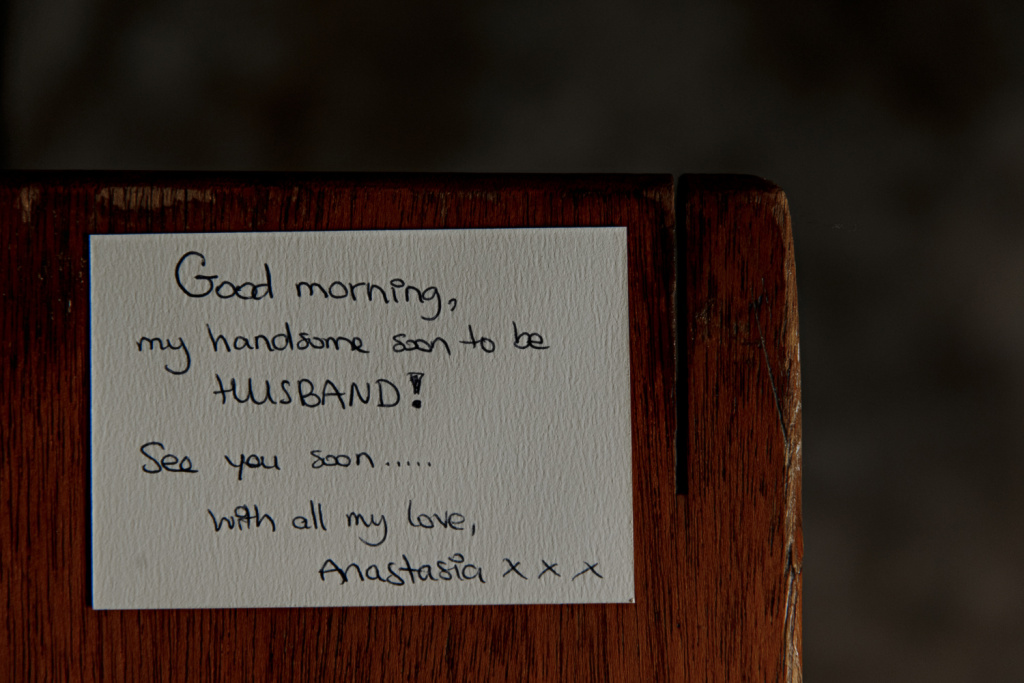 Good morning,
my handsome soon to be
HUSBAND!
See you soon.....
with all my love,
Anastasia x x x